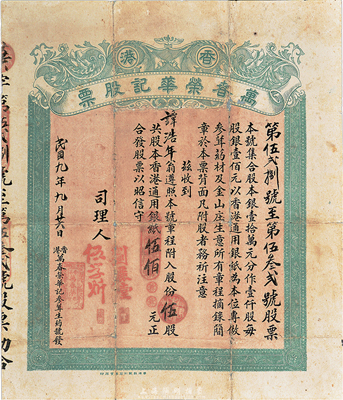 香港
萬春榮華記股票
第伍弍捌號至第伍叁弍號股票
本號集合股本銀壹拾萬元分作壹仟股每
股銀壹佰元以香港通用銀紙為本位專做
參茸药材及金山庄生意所有章程摘錄簡
章於本票背面凡附股者務祈注意
茲收到
諱浩年翁遵照本號章程附入股份伍股
共股本香港通用銀紙伍佰元正
合發股票以昭信守
司理人
民國九年九月廿六日
香港萬春榮華記參茸生药號發